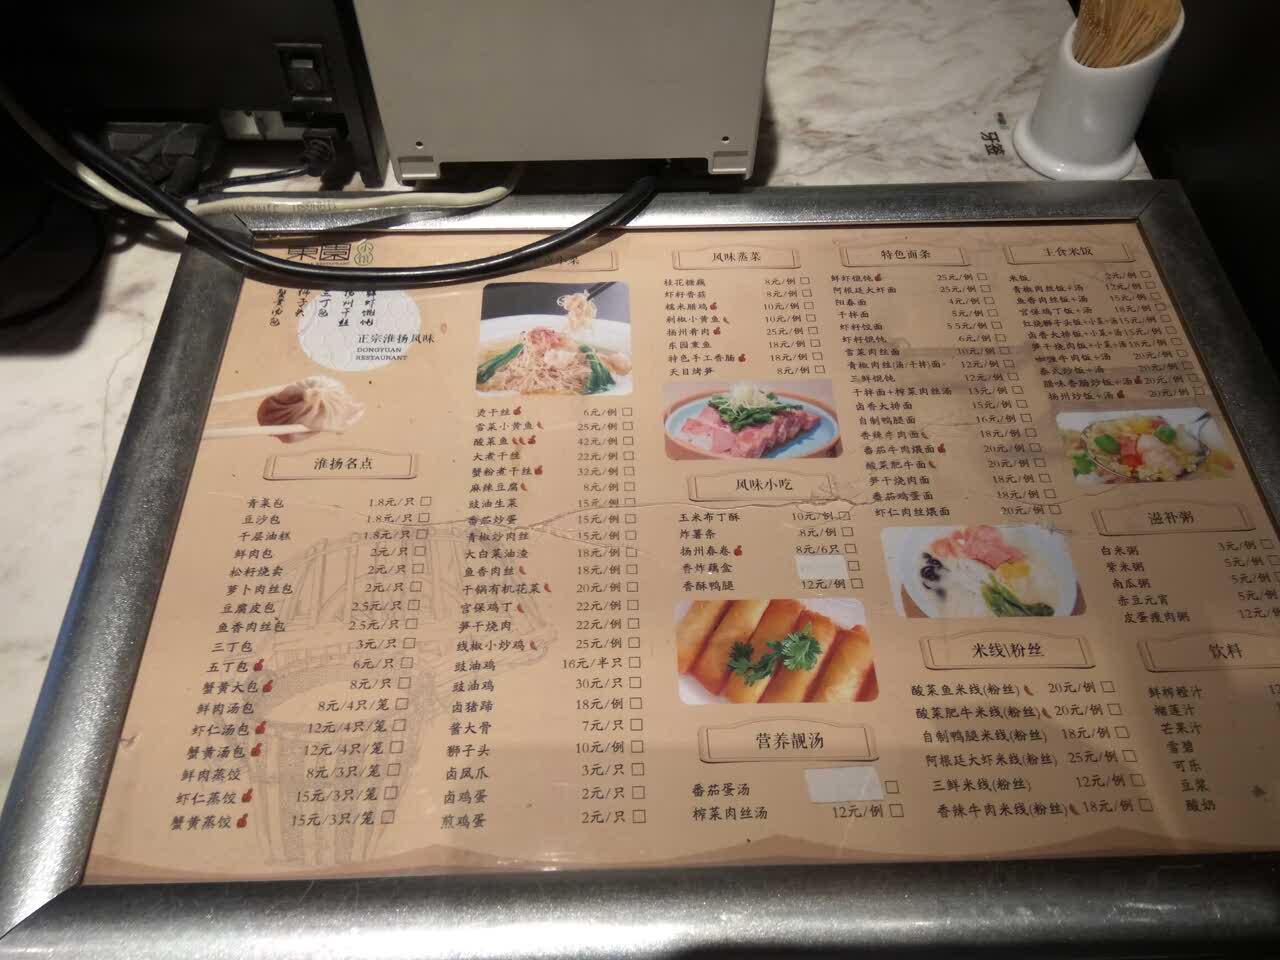 牙签
東園
小馆
鲜虾馄饨
扬州干丝
三丁包
狮子头
蟹黄汤包
正宗淮扬风味
DONGYUAN
RESTAURANT
淮扬名点
青菜包 1.8元/只
豆沙包 1.8元/只
千层油糕 1.8元/只
鲜肉包 2元/只
松籽烧卖 2元/只
萝卜肉丝包 2元/只
豆腐皮包 2.5元/只
鱼香肉丝包 2.5元/只
三丁包 3元/只
五丁包 6元/只
蟹黄大包 8元/只
鲜肉汤包 8元/4只/笼
虾仁汤包 12元/4只/笼
蟹黄汤包 12元/4只/笼
鲜肉蒸饺 8元/3只/笼
虾仁蒸饺 15元/3只/笼
蟹黄蒸饺 15元/3只/笼
烫干丝 6元/例
雪菜小黄鱼 25元/例
酸菜鱼 42元/例
大煮干丝 22元/例
蟹粉煮干丝 32元/例
麻辣豆腐 8元/例
豉油生菜 15元/例
番茄炒蛋 15元/例
青椒炒肉丝 15元/例
大白菜油渣 18元/例
鱼香肉丝 18元/例
干锅有机花菜 20元/例
宫保鸡丁 22元/例
笋干烧肉 22元/例
线椒小炒鸡 25元/例
豉油鸡 16元/半只
豉油鸡 30元/只
卤猪蹄 18元/例
酱大骨 7元/只
狮子头 10元/例
卤凤爪 3元/只
卤鸡蛋 2元/只
煎鸡蛋 2元/只
风味蒸菜
桂花糖藕 8元/例
虾籽香菇 8元/例
糯米腊鸡 10元/例
剁椒小黄鱼 10元/例
扬州肴肉 25元/例
东园熏鱼 18元/例
特色手工香肠 18元/例
天目烤笋 8元/例
风味小吃
玉米布丁酥 10元/例
炸薯条 8元/例
扬州春卷 8元/6只
香炸藕盒
香酥鸭腿 12元/例
营养靓汤
番茄蛋汤
榨菜肉丝汤 12元/例
特色面条
鲜虾馄饨 25元/例
阿根廷大虾面 25元/例
阳春面 4元/例
干拌面 5元/例
虾籽饺面 5.5元/例
虾籽馄饨 6元/例
雪菜肉丝面 10元/例
青椒肉丝(汤/干拌)面 12元/例
三鲜馄饨 12元/例
干拌面+榨菜肉丝汤 13元/例
卤香大排面 15元/例
自制鸭腿面 16元/例
香辣牛肉面 18元/例
番茄牛肉煨面 20元/例
酸菜肥牛面 20元/例
笋干烧肉面 18元/例
番茄鸡蛋面 18元/例
虾仁肉丝煨面 20元/例
米线\粉丝
酸菜鱼米线(粉丝) 20元/例
酸菜肥牛米线(粉丝) 20元/例
自制鸭腿米线(粉丝) 18元/例
阿根廷大虾米线(粉丝) 25元/例
三鲜米线(粉丝) 12元/例
香辣牛肉米线(粉丝) 18元/例
主食米饭
米饭 2元/例
青椒肉丝饭+汤 12元/例
鱼香肉丝饭+汤 15元/例
宫保鸡丁饭+汤 18元/例
红烧狮子头饭+小菜+汤 15元/例
卤香大排饭+小菜+汤 15元/例
笋干烧肉饭+小菜+汤 18元/例
咖喱牛肉饭+汤 20元/例
泰式炒饭+汤 20元/例
腊味香肠炒饭+汤 20元/例
扬州炒饭+汤 20元/例
滋补粥
白米粥 3元/例
紫米粥 5元/例
南瓜粥 5元/例
赤豆元宵 5元/例
皮蛋瘦肉粥 12元/
饮料
鲜榨橙汁 12
榴莲汁
芒果汁
雪碧
可乐
豆浆
酸奶